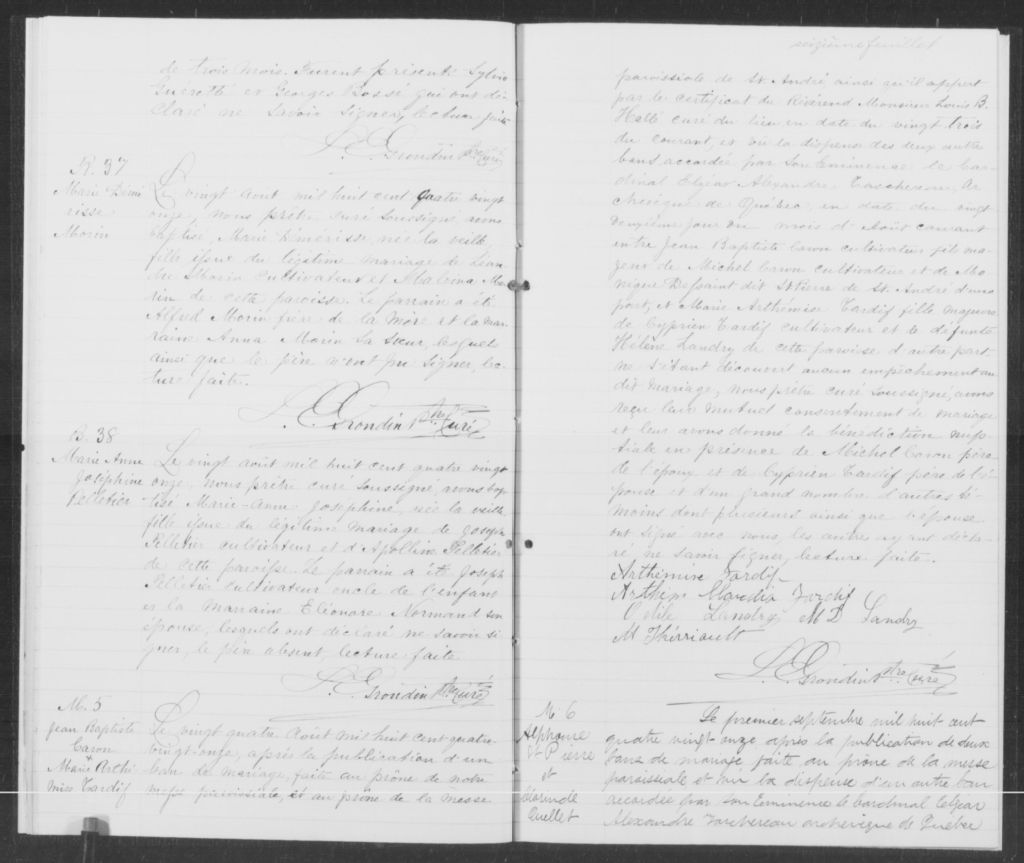 de trois mois. Furent présents Sylvio
Guerette et Georges Bossé qui ont dé-
claré ne savoir signer, lecture faite
L. C. Grondin Ptre Curé
B. 37
Marie Démé
risse
Morin
Le vingt Août mil huit cent quatre vingt
onze, nous prêtre curé soussigné avons
baptisé, Marie Démérisse née la veille,
fille issue du légitime mariage de Léan-
dre Morin cultivateur et Malvina Mo-
rin de cette paroisse. Le parrain a été
Alfred Morin frère de la mère et la mar-
raine Anna Morin sa sœur, lesquels
ainsi que le père n'ont pu signer, lec-
ture faite.
L. C. Grondin Ptre Curé
B. 38
Marie Anne
Joséphine
Pelletier
Le vingt août mil huit cent quatre vingt
onze, nous prêtre curé soussigné, avons bap-
tisé Marie-Anne Joséphine, née la veille
fille issue du légitime mariage de Joseph
Pelletier cultivateur et d'Apolline Pelletier
de cette paroisse. Le parrain a été Joseph
Pelletier cultivateur oncle de l'enfant
et la marraine Eléonore Normand son
épouse, lesquels ont déclaré ne savoir si-
gner, le père absent, lecture faite
L. C. Grondin Ptre Curé
M. 5
Jean Baptiste
Caron
+
Marie Arthé
mise Tardif
Le vingt quatre Août mil huit cent quatre-
vingt-onze, après la publication d'un
ban de mariage, faite au prône de notre
messe paroissiale, et au prône de la messe
seizième feuillet
paroissiale de St André ainsi qu'il appert
par le certificat du Révérend Monsieur Louis B.
Hallé curé du lieu en date du vingt trois
du courant, et vu la dispense des deux autres
bans accordée par Son Eminence le Car-
dinal Elzéar Alexandre Taschereau, Ar-
chevêque de Québec, en date du vingt
deuxième jour du mois d'Août courant
entre Jean Baptiste Caron cultivateur fils ma-
jeur de Michel Caron cultivateur et de Mo-
nique Dessaint dit St Pierre de St. André d'une
part, et Marie Arthémise Tardif fille majeure
de Cyprien Tardif cultivateur et de défunte
Hélène Landry de cette paroisse d'autre part
ne s'étant découvert aucun empêchement au
dit mariage, nous prêtre curé soussigné, avons
reçu leur mutuel consentement de mariage
et leur avons donné la bénédiction nup-
tiale en présence de Michel Caron père
de l'époux et de Cyprien Tardif père de l'é-
pouse et d'un grand nombre d'autres té-
moins dont plusieurs ainsi que l'épouse
ont signé avec nous, les autres ayant décla-
ré ne savoir signer, lecture faite.
Arthémise Tardif
Claudia Tardif
Odile Landry M D Landry
M Thérriault
L. C. Grondin Ptre Curé
M. 6
Alphonse
St Pierre
et
Ouellet
Le premier septembre mil huit cent
quatre vingt onze après la publication de deux
bans de mariage faite au prône de la messe
paroissiale et vu la dispense d'un autre ban
accordée par Son Eminence le Cardinal Elzéar
Alexandre Taschereau archevêque de Québec